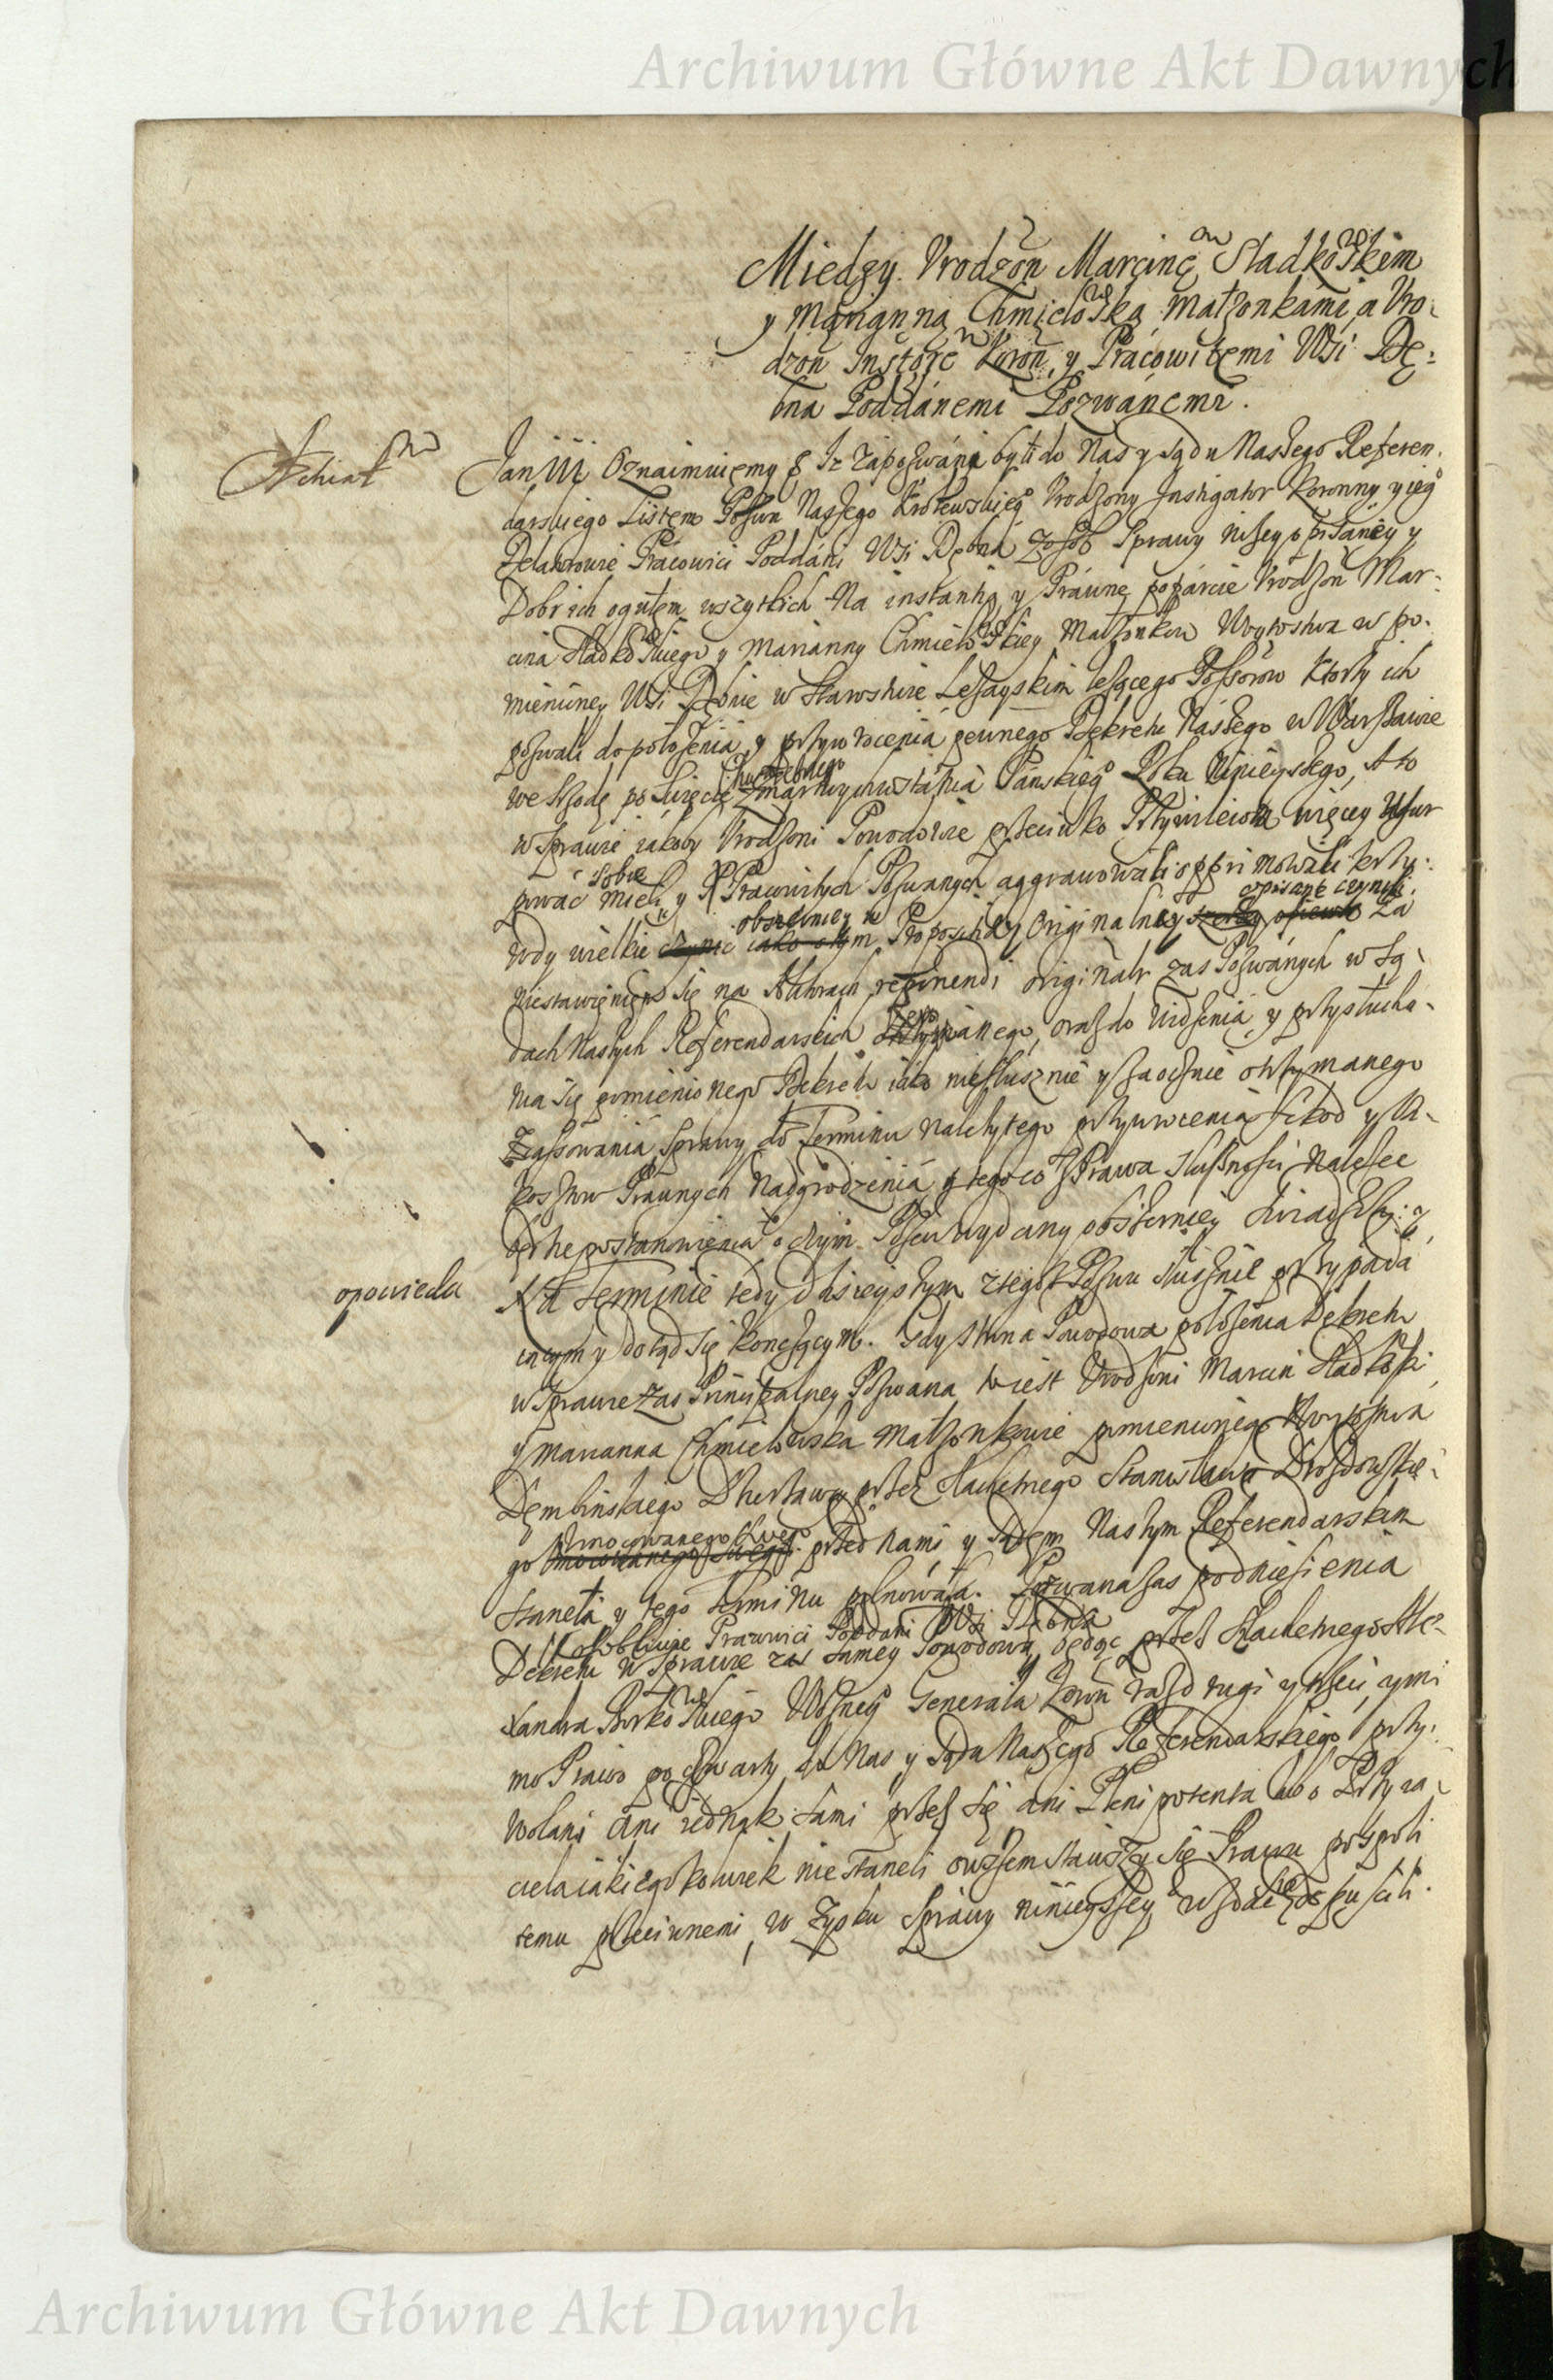 Archiwum Główne Akt Dawnych
Między Vrodzon Marcinē Sładkowskiem
y Maryanną Chmielowską Małżonkami, a Vro-
dzon Instorē Koron, y Pracowitemi Wsi Dę-
bna Poddanemi Pozwanemi.
Jan III Oznaimuiemy Iz Zapozwani byli do Nas y Sądu Naszego Referen-
darskiego Listem Pozwu Naszego Krolewskieg Vrodzony Instigator Koronny y ieg
Delatorowie Pracowici Poddani Wsi Dębna Zosob Sprawy nizey opisaney y
Dobr ich ogułem wszytkich Na instantią y Prawne poparcie Vrodzon Mar-
cina Sładkowskiego y Marianny Chmielowskiey Małżonkow Woytostwa w po-
mienioney Wsi Dębnie w Starostwie Leżayskim leżącego Possorow Ktorzy ich
pozwali do położenia y przywrocenia pewnego Dekretu Naszego w Warszawie
we Srzodę po Święcie Chwalebnego Zmartwychwstania Pańskieg Roku Tynieyszego, A to
w sprawie iakoby Vrodzoni Powodowie przeciwko Przywileiom więcey Usur
pować sobie mieli y Prawcowitych Pozwanych aggrawowali oppri mowali krzy-
wdy wielkie czynić iako o tym obszerniey w Propositiey Originalney opisane czynili Za
niestawieniem się na Aktorach retinendi originału zas Pozwanych w Są-
dach Naszych Referendarskich otrzymanego, oraz do Widzenia y przysłucha-
nia się pomienionego Dekretu iako niesłusznie y zaocznie otrzymanego
Zkassowania Sprawy do Terminu należytego przywrocenia szkod y Na-
kosztow Prawnych Nadgrodzenia y tego co z Prawa Słuszności Należee
będzie postanowienia o czym Pozew wydany obszerniey świadczy
opowieda
Na Terminie tedy dzisieyszym z tegoż Pozwu słusznie przypada
iącym y dotąd się konczącym. Gdy Strona Powodowa położenia Dekretu
w Sprawie zas Principalney Pozwana to iest Vrodzoni Marcin Sładkowski
y Marianna Chmielowska Małżonkowie pomienionego Woytostwa
Dembinskiego Dzierżawcy przez Szlachetnego Stanisława Drozdowskie-
go Umocowanego Swego przed Nami y Sądem Naszym Referendarskim
stanęła y tego Terminu pilnowała. Pozwana zas podniesienia
Dekretu w Sprawie zas samey Powodowa Osobliwie Pracowici Poddani Wsi Dębna będąc przez Szlachetnego Ale-
xandra Borkowskiego Woźneg Generała Koron raz drugi y trzeci, y mi
mo Prawo po czwarty do Nas y Sądu Naszego Referendarskiego przy-
wołani ani iednak sami przez się ani Plenipotenta albo Przyia-
ciela iakiegokolwiek nie stanęli owszem stawszy się Prawu pospoli
temu przeciwnemi, w Zysku Sprawy ninieyszey wzdac się dopuscili.
Archiwum Główne Akt Dawnych